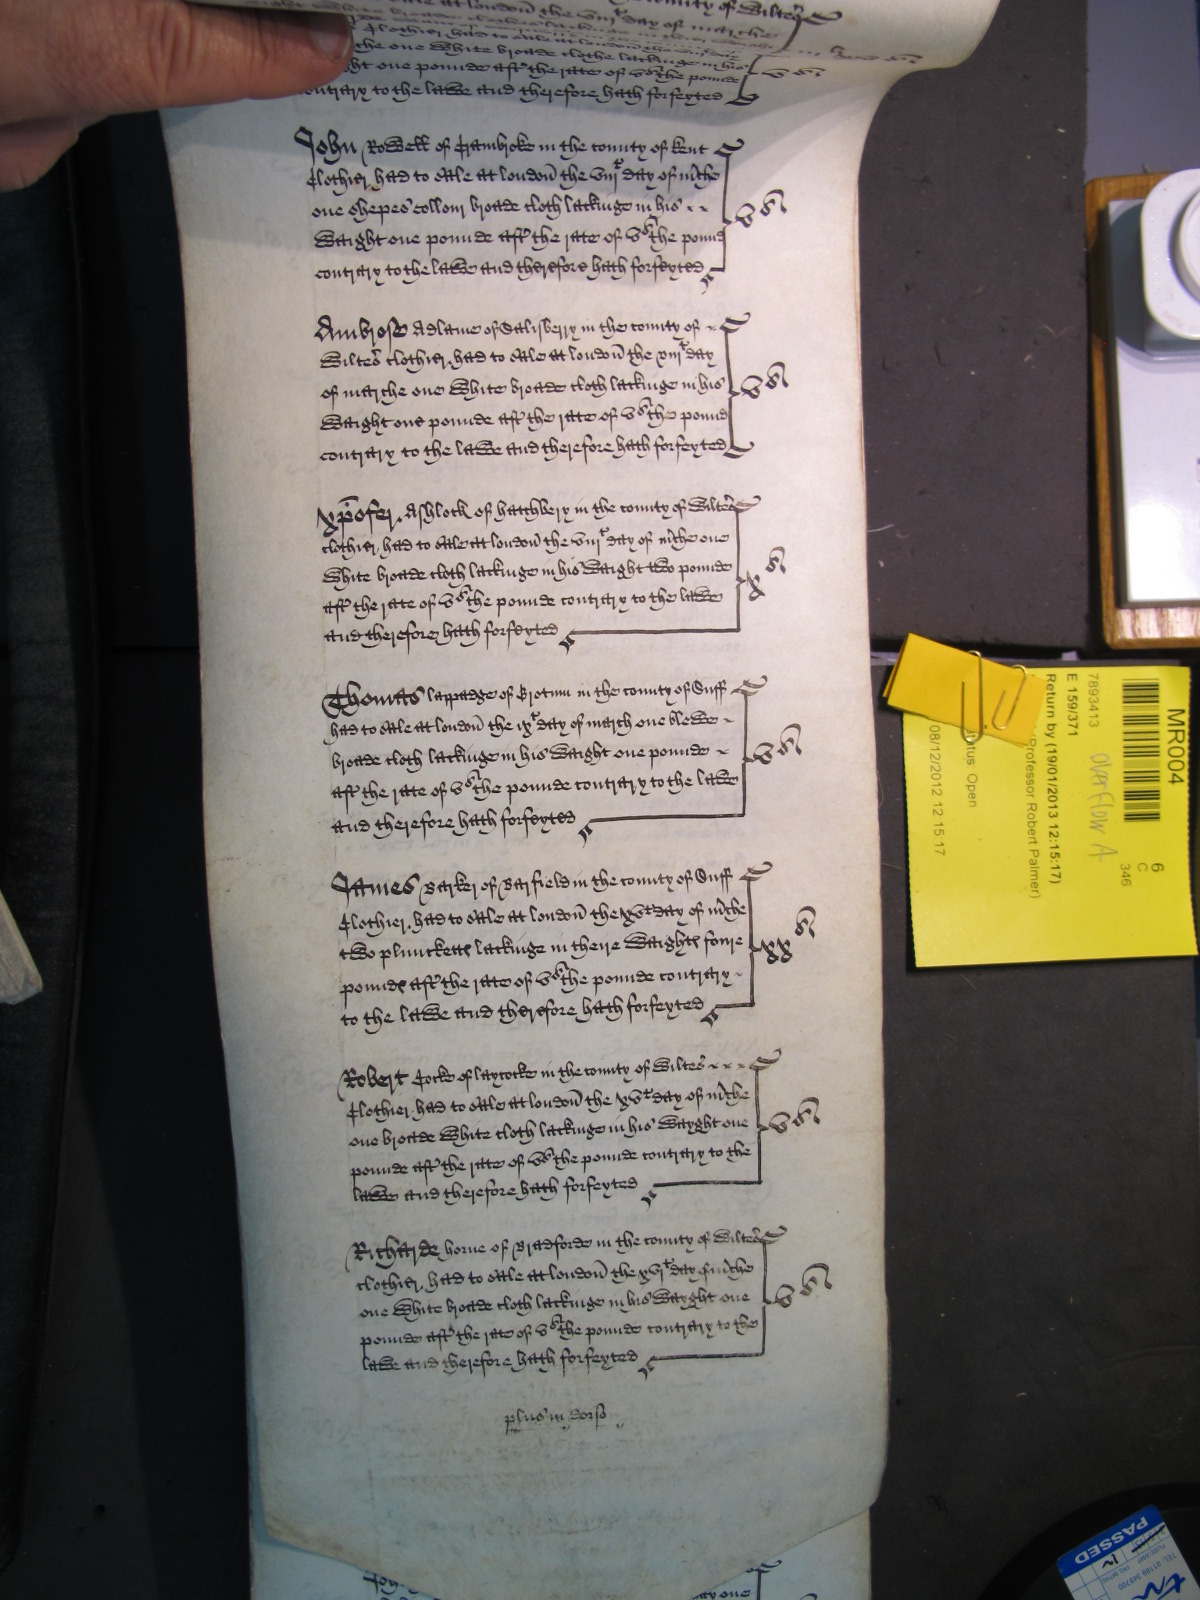 clothier had to sale at london the viij day of marche
the one white broade clothe lackinge in his
ght one pounde aftʳ the rate of vˢ the pounde vˢ
contrary to the lawe and therefore hath forfeyted
John Rowell of Crambroke in the county of Kent
Clothier had to sale at london the viijᵗ day of mʳche
one shepes collour broade cloth lackinge in his vˢ
waight one pounde aftʳ the rate of vˢ the pound
contrary to the lawe and therefore hath forfeyted
Ambrose Adlame of Salisberry in the county of
Wiltes clothier had to sale at london the xiijᵗ day
of marche one white broade cloth lackinge in his vˢ
waight one pounde aftʳ the rate of vˢ the pound
contrary to the lawe and therefore hath forfeyted
xpofer Ashlock of hatchbery in the county of Wiltes
clothier had to sale at london the viijᵗ day of mʳche one
white broade cloth lackinge in his waight two pounde xˢ
aftʳ the rate of vˢ the pounde contrary to the lawe
and therefore hath forfeyted
Thomas lappadge of in the county of Suff
had to sale at london the ixᵗ day of march one blewe
broade cloth lackinge in his waight one pounde vˢ
aftʳ the rate of vˢ the pounde contrary to the lawe
and therefore hath forfeyted
James Barker of Barfield in the county of Suff
Clothier had to sale at london the xvᵗ day of mʳche
two plunckettes lackinge in theire waightes foure xxˢ
poundes aftʳ the rate of vˢ the pounde contrary
to the lawe and therefore hath forfeyted
Robert Cocke of laycocke in the county of Wiltes
Clothier had to sale at london the xvᵗ day of mʳche
one broade white cloth lackinge in his wayght one vˢ
pounde aftʳ the rate of vˢ the pounde contrary to the
lawe and therefore hath forfeyted
Richarde horne of Bradforde in the county of Wiltes
clothier had to sale at london the xviᵗ day of mʳche
one white broade cloth lackinge in his wayght one vˢ
pounde aftʳ the rate of vˢ the pounde contrary to the
lawe and therefore hath forfeyted
plus in dorso
MR004
7893413
OVERFLOW A
6
C
346
E 159/371
Return by (19/01/2013 12:15:17)
(Professor Robert Palmer)
Status: Open
08/12/2012 12:15:17
PASSED